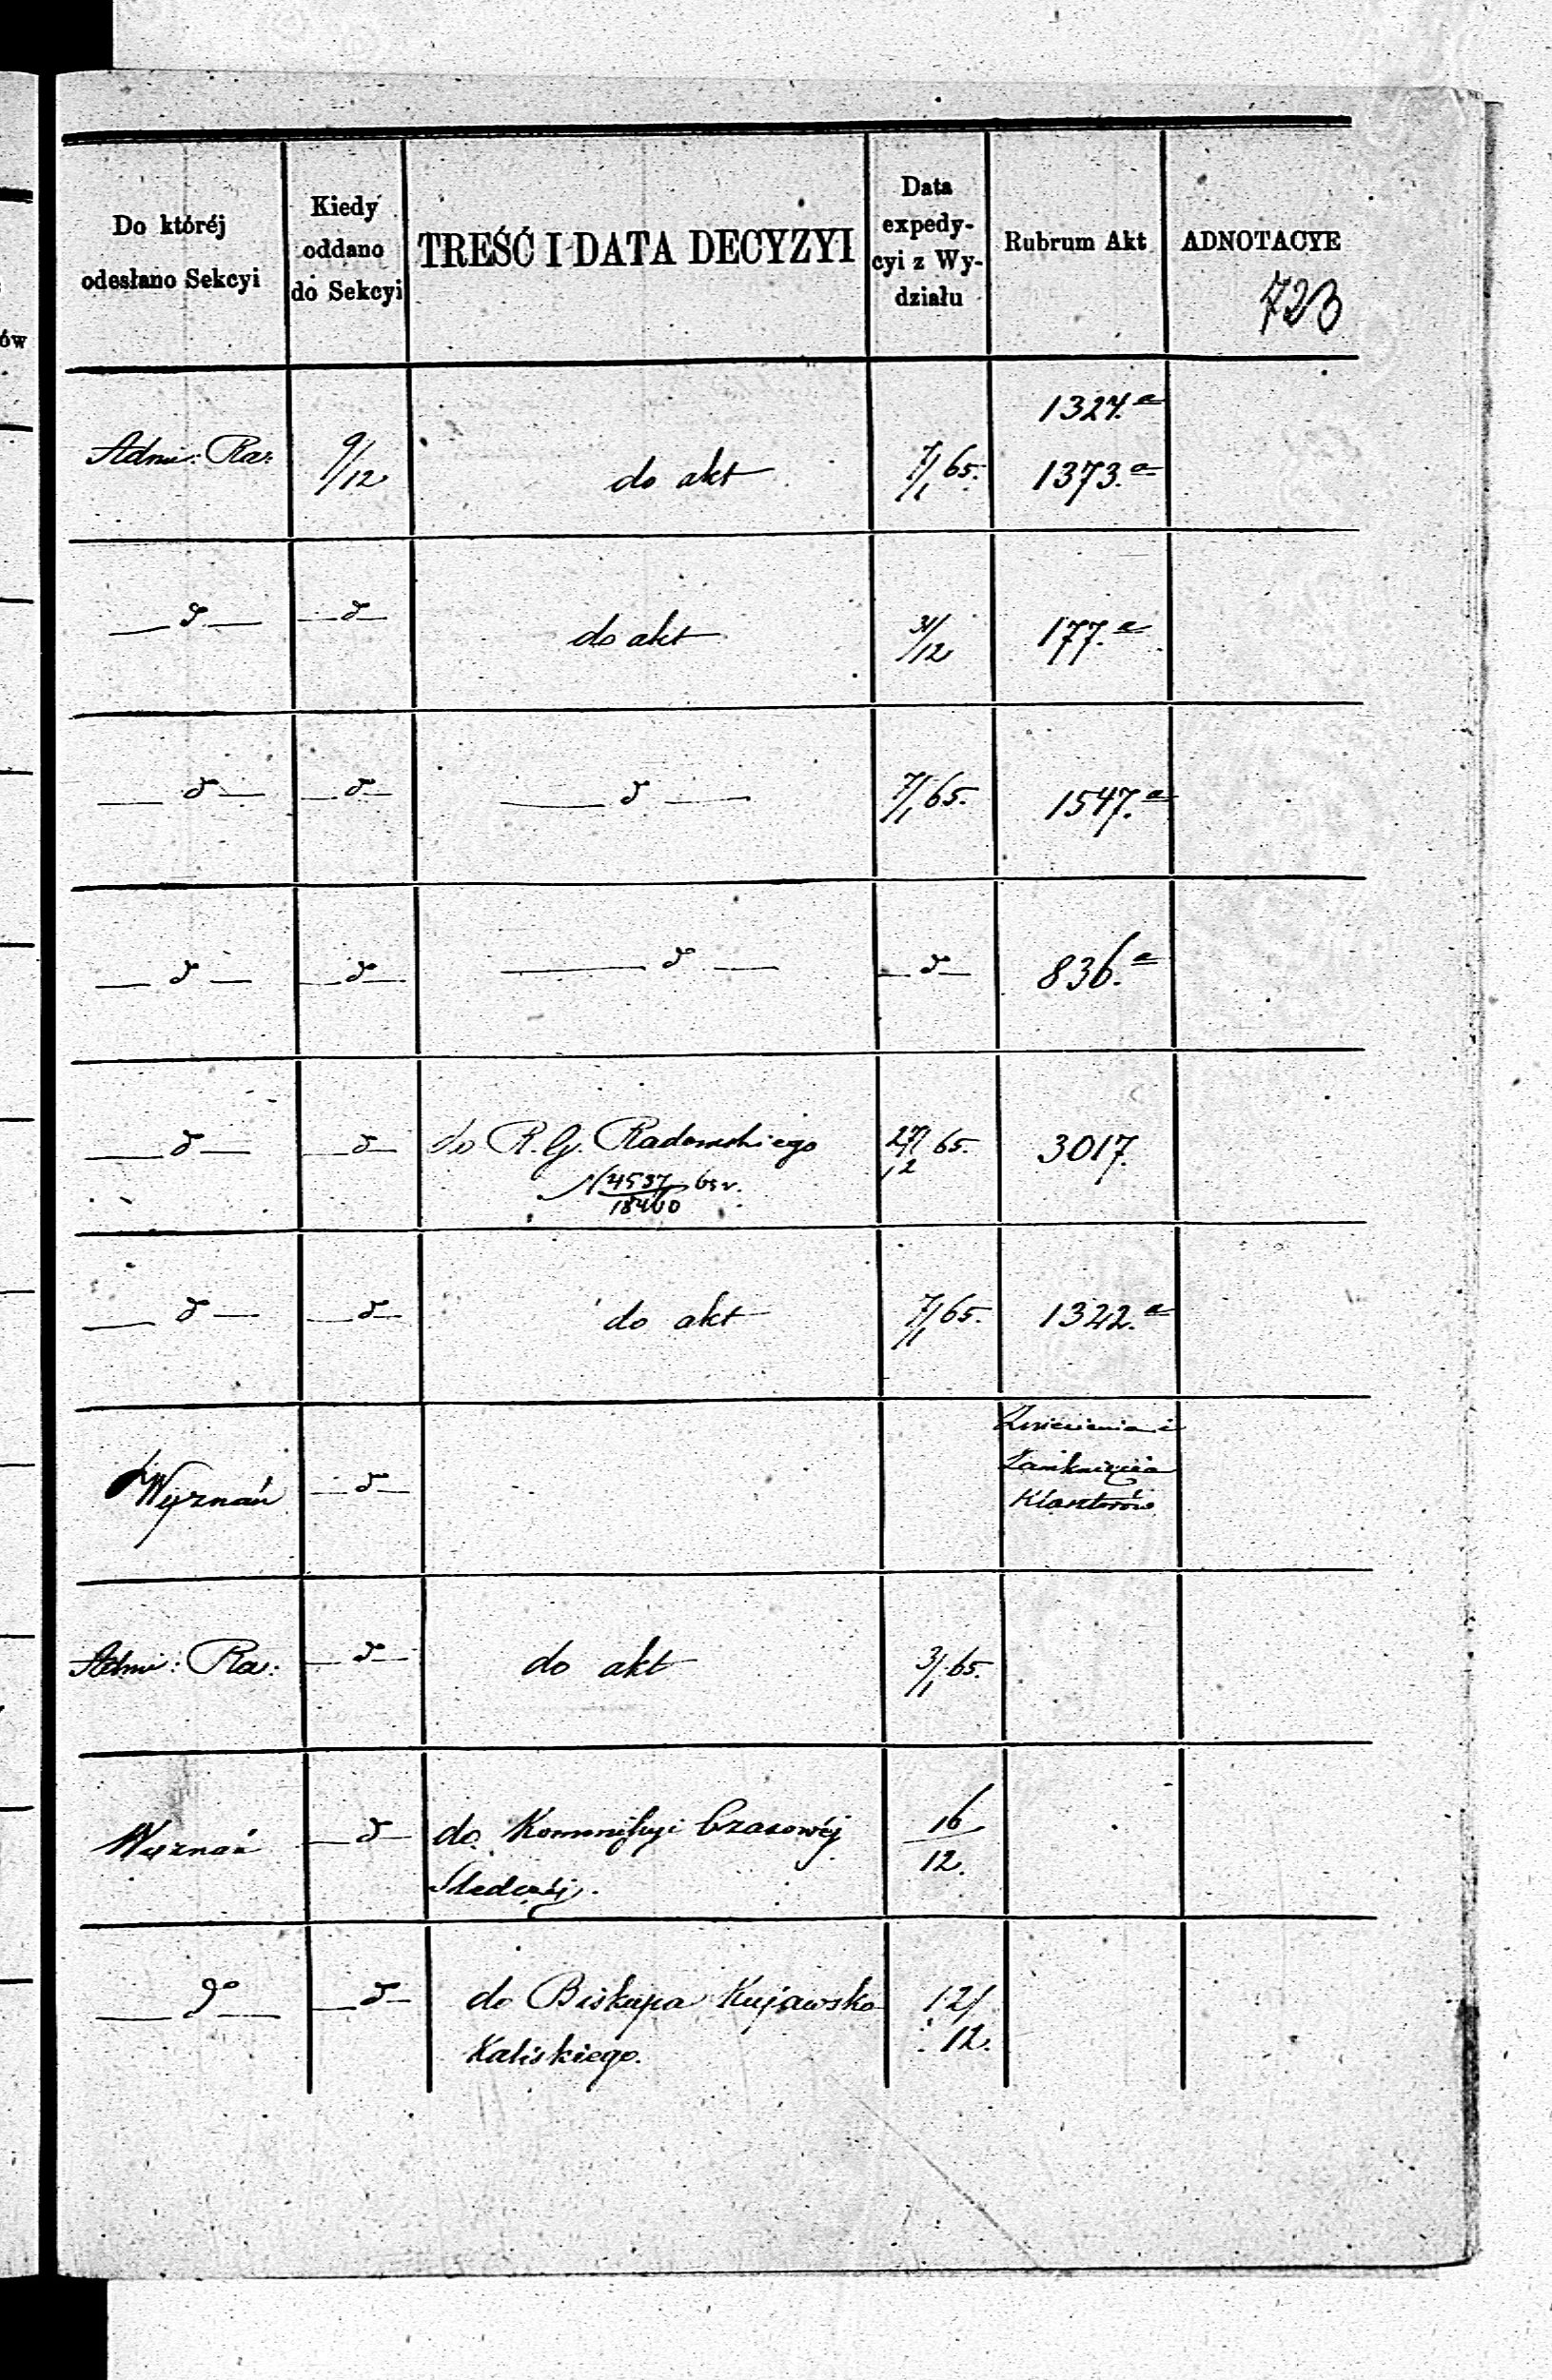 Do któréj
odesłano Sekcyi
Kiedy
oddano
do Sekcyi
TREŚĆ I DATA DECYZYI
Data
expedy-
cyi z Wy-
działu
Rubrum Akt
ADNOTACYE
723
ów
1324.a
Adm: Ra: 9/12 do akt 7/1 65. 1373.a
— d — — d — do akt 31/12 177.a
— d — — d — — d — 7/1 65. 1547.a
— d — — d — — d — — d — 836.a
— d — — d — do R. G. Radomskiego 27/2 65. 3017.
N 4537/18460
— d — — d — do akt 7/1 65. 1322.a
Zniesienia i
Wyznań — d — Zamknięcia
Klasztorów
Admi: Ra: — d — do akt 3/1 65.
Wyznań — d — do Kommissyi Czasowéj 16/12.
Śledczéj.
— do — — d — do Biskupa Kujawsko 12/12.
Kaliskiego.